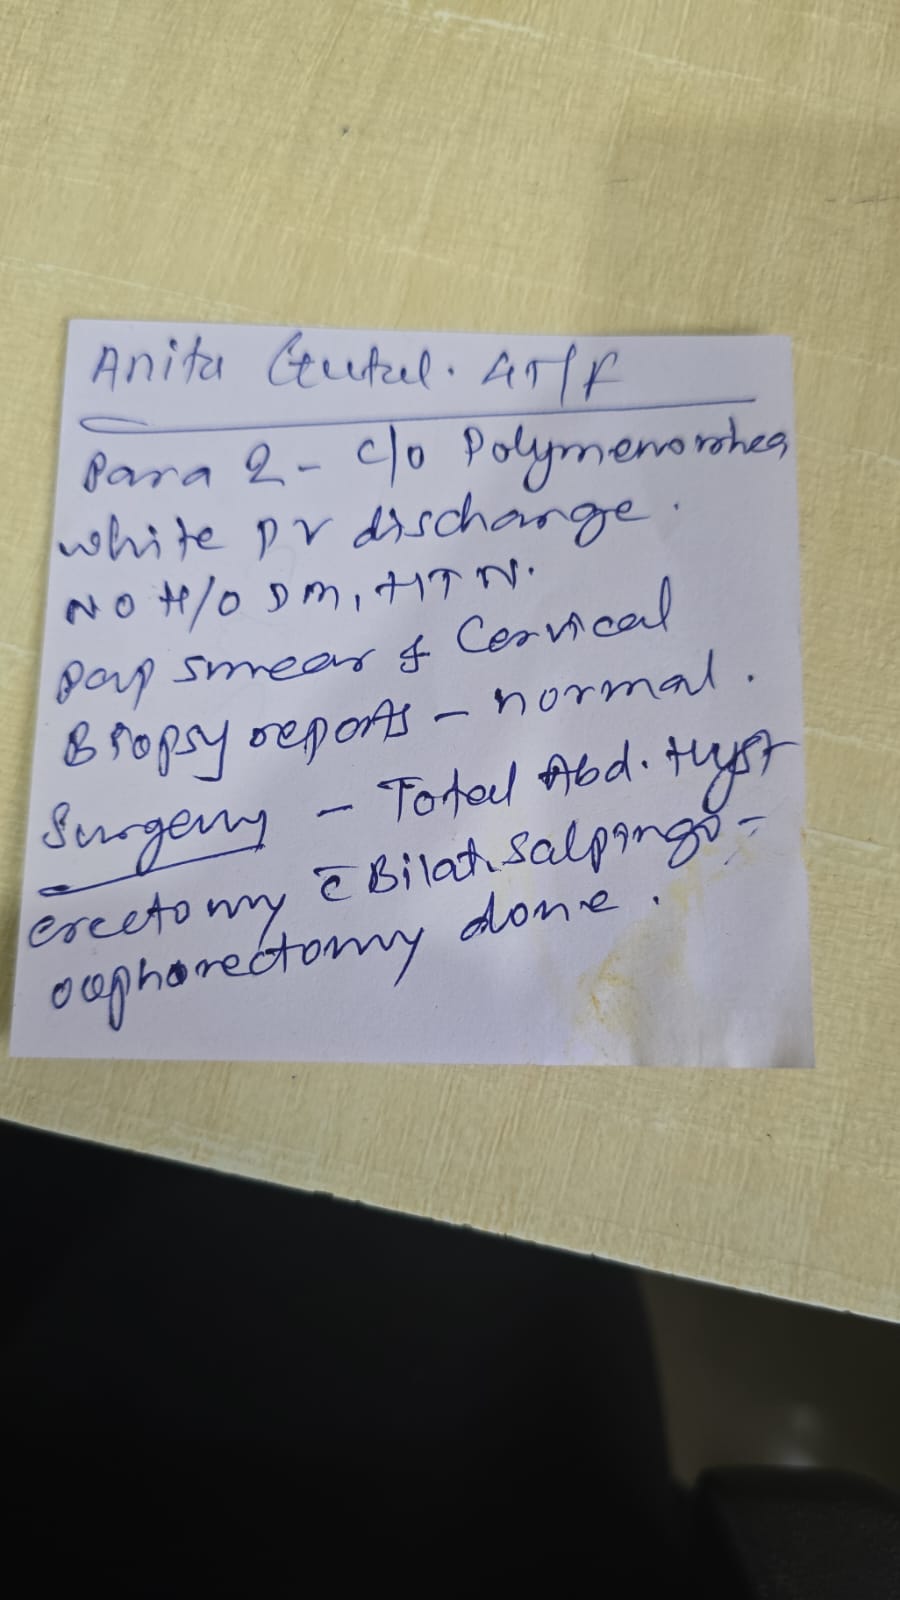 Anita Gutal. 45/F
Para 2 - c/o Polymenorrhea
white PV discharge.
NO H/O DM, HTN.
Pap smear & Cervical
Biopsy reports - normal.
Surgery - Total Abd. Hyst
erectomy c̄ Bilat. Salpingo-
oophorectomy done.